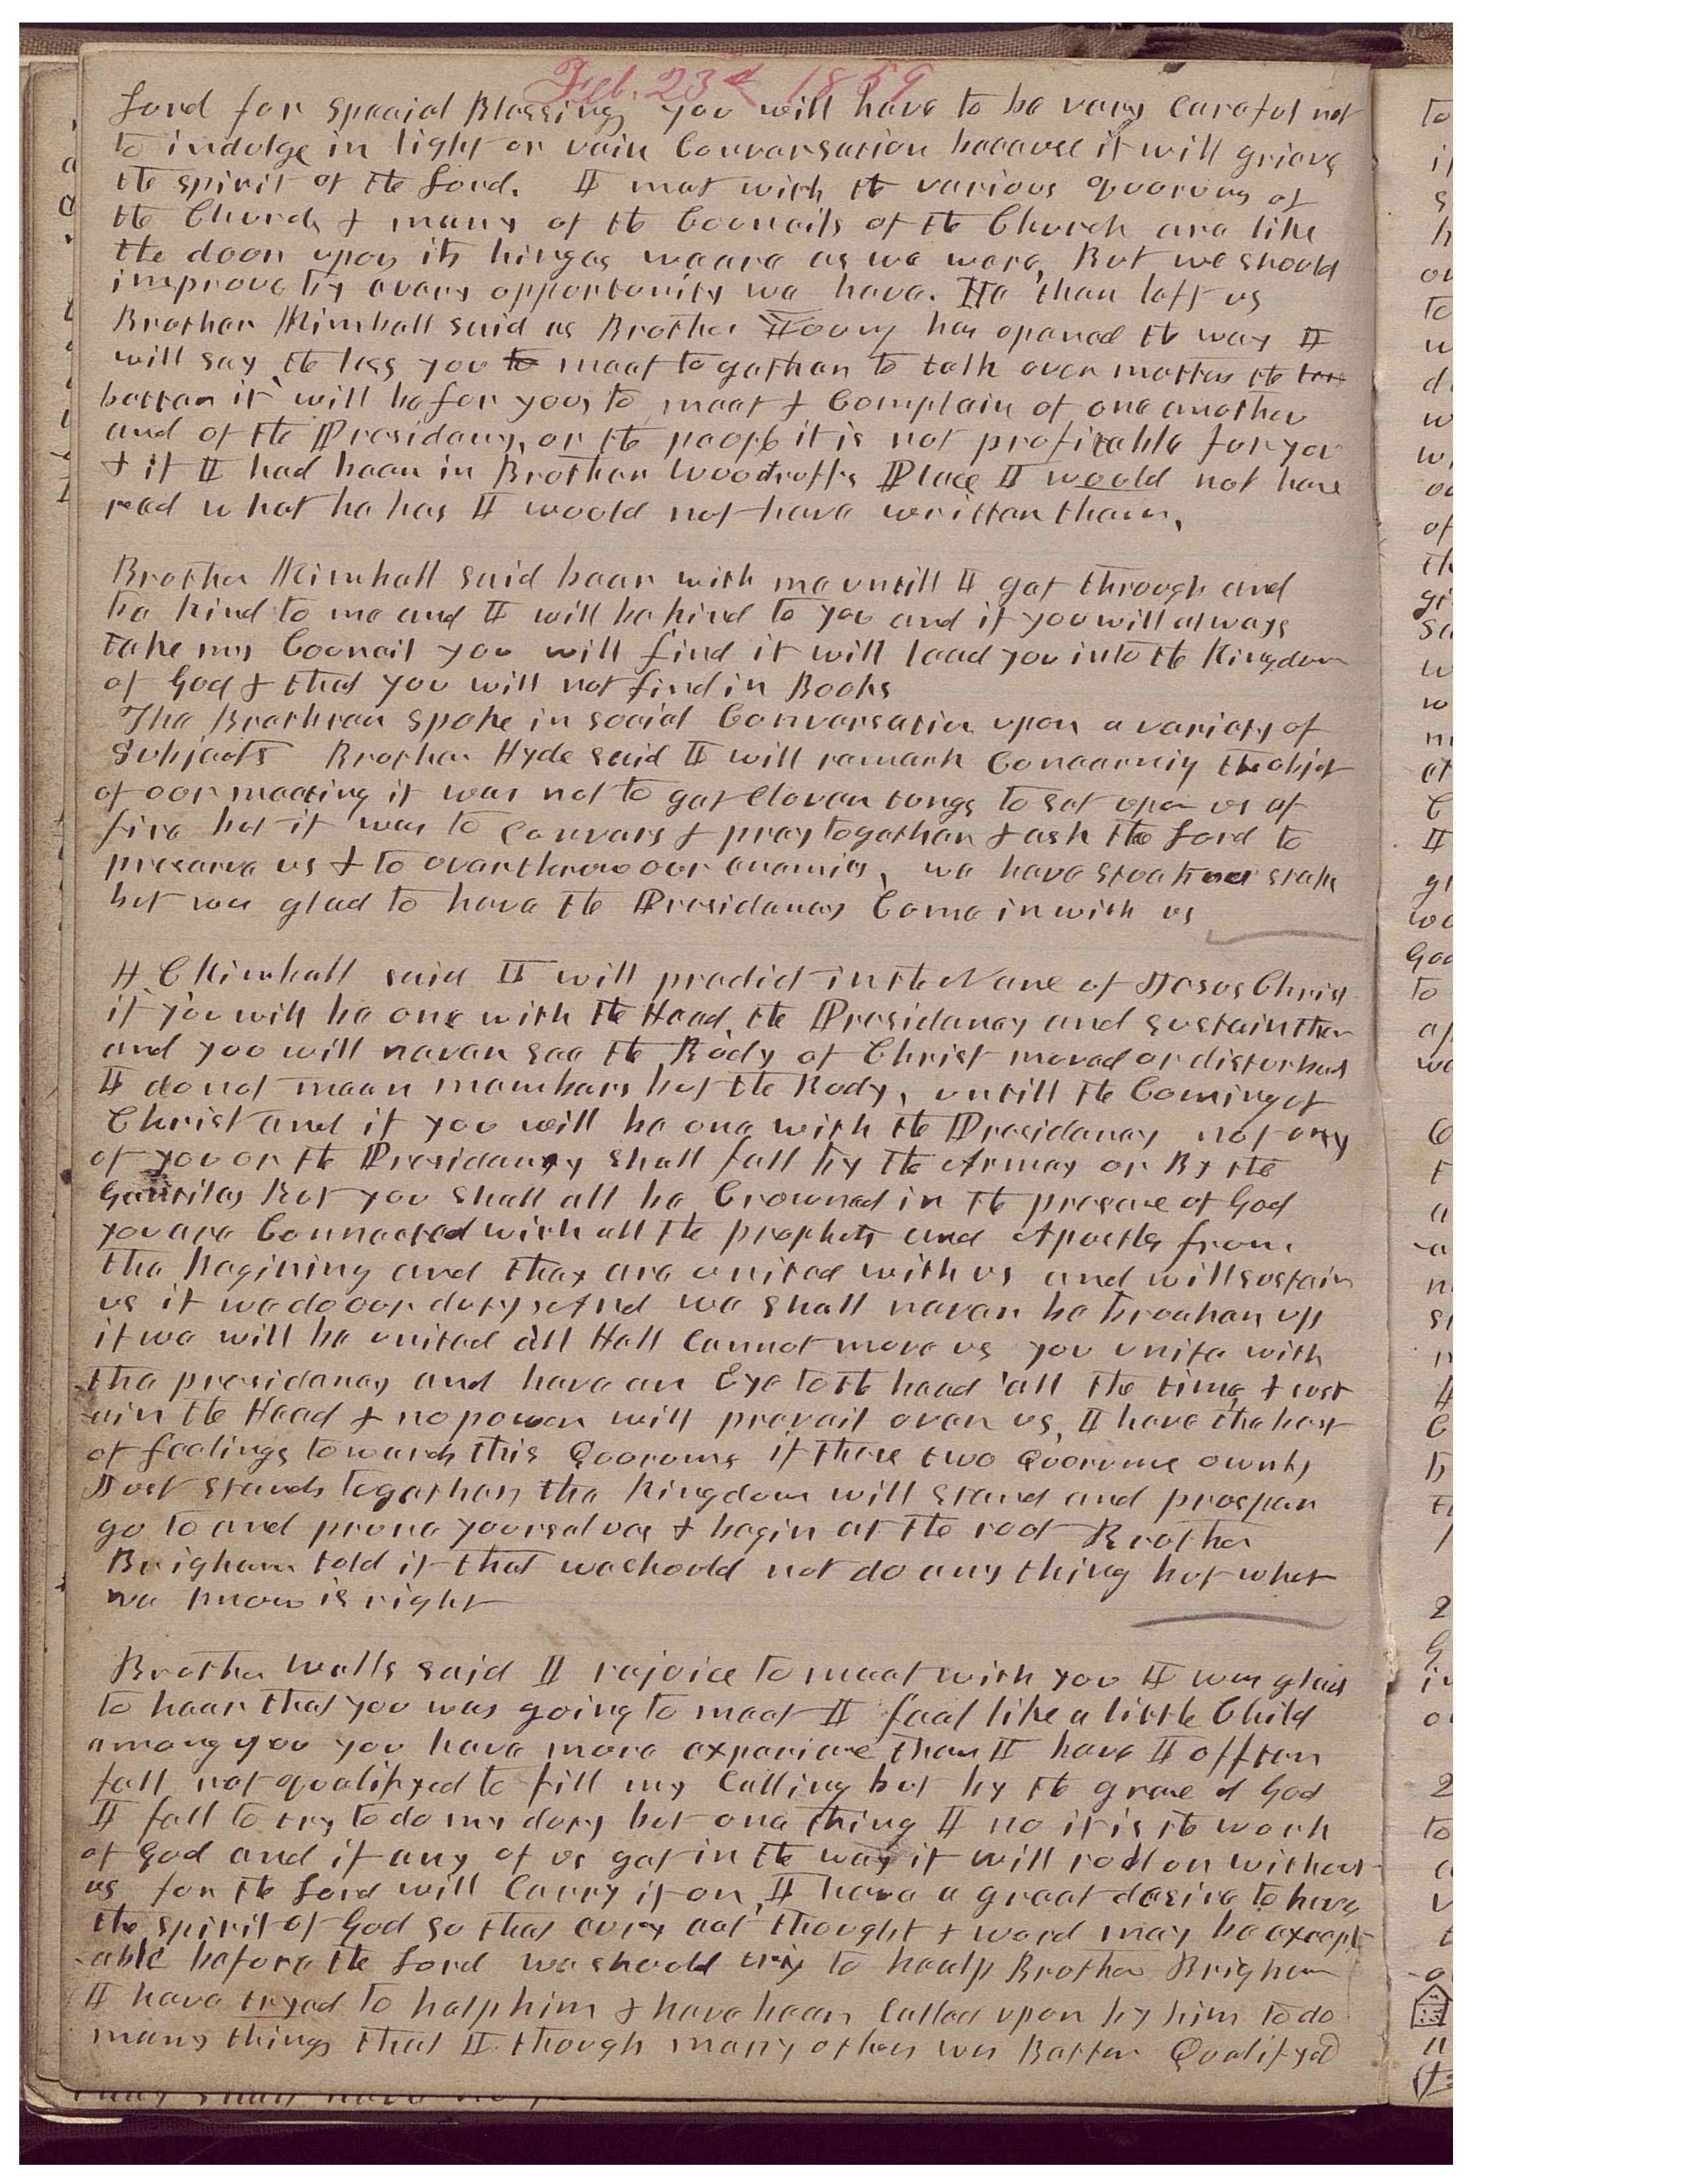 Feb. 23d 1859
Lord for special Blessings you will have to be vary Careful not
to indulge in light or vain Conversation because it will grieve
the spirit of the Lord. I met with the various Quorums of
the Church & many of the Councils of the Church are like
the door upon its hinges weare as we were, But we should
improve by evary opportunity we have. He then left us
Brother Kimball said as Brother Young has opened the way I
will say the less you to meet together to talk over matters the
better it will be for you, to meet & Complain of one another
and of the Presidency, or the people it is not profitable for you
& if I had been in Brother Woodruffs Place I would not have
read what he has I would not have written them,
Brother Kimball said bear with me untill I get through and
be kind to me and I will be kind to you and if you will always
take my Council you will find it will lead you into the Kingdom
of God & that you will not find in Books
The Brethren spoke in social Conversation upon a variety of
Subjects Brother Hyde said I will remark Concerning the object
of our meeting it was not to get Cloven tongs to set upon us of
fire but it was to Convers & pray together & ask the Lord to
preserve us & to overthrow our enemies, we have
but was glad to have the Presidency Come in with us
H C Kimball said I will predict in the Name of Jesus Christ
if you will be one with the Head, the Presidency and sustain them
and you will never see the Body of Christ moved or disturbed
I do not mean members but the Body, untill the Coming of
Christ and if you will be one with the Presidency not any
of you or the Presidency shall fall by the Armey or By the
Gentiles But you shall all be Crowned in the presence of God
you are Connected with all the prophets and Apostles from
the Begining and they are united with us and will sustain
us if we do our duty, And we shall never be broaken up
if we will be united all Hell Cannot move us you unite with
the presidency and have an Eye to the head all the time, & sust
ain the Head & no power will prevail over us, I have the best
of feelings towards this Quorums if these two Quorums ownly
Just stands together, the Kingdom will stand and prosper
go to and prune yourselves & begin at the root Brother
Brigham told it that we should not do any thing but what
we know is right
Brother Wells said I rejoice to meet with you I was glad
to hear that you was going to meet I feel like a little Child
among you you have more experience than I have I offten
fell not qualifyed to fill my Calling but by the grace of God
I fell to try to do my duty but one thing I no it is the work
of God and if any of us get in the way it will roll on without
us for the Lord will Carry it on, I have a great desire to have
the spirit of God so that evry act thought & word may be except-
-able before the Lord we should try to healp Brother Brigham
I have tryed to help him & have been Called upon by him to do
many things that I though many others was Better Qualifyed